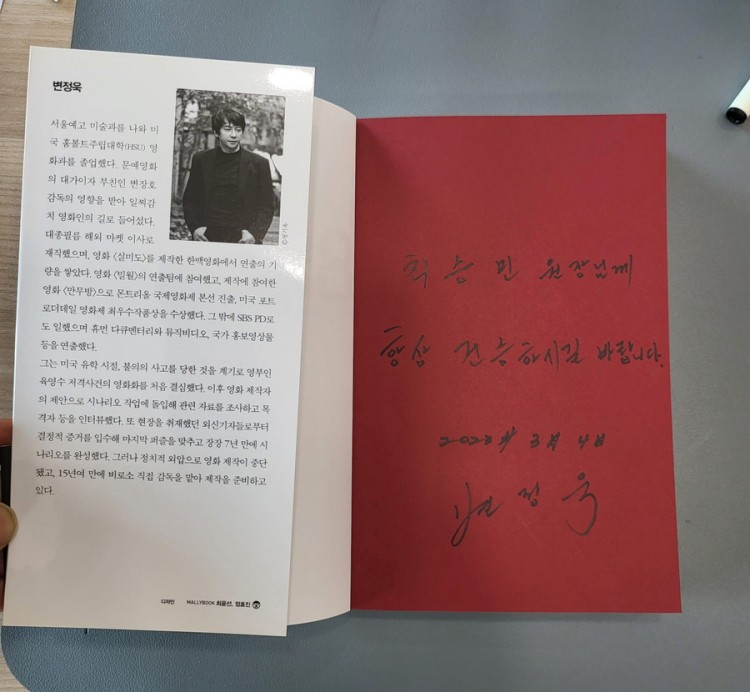 변정욱
서울예고 미술과를 나와 미
국 홈볼트주립대학(HSU) 영
화과를 졸업했다. 문예영화
의 대가이자 부친인 변장호
감독의 영향을 받아 일찌감
치 영화인의 길로 들어섰다.
대종필름 해외 마켓 이사로
재직했으며, 영화 〈실미도〉를 제작한 한맥영화에서 연출의 기
량을 쌓았다. 영화 〈밀월〉의 연출팀에 참여했고, 제작에 참여한
영화 〈만무방〉으로 몬트리올 국제영화제 본선 진출, 미국 포트
로더데일 영화제 최우수작품상을 수상했다. 그 밖에 SBS PD로
도 일했으며 휴먼 다큐멘터리와 뮤직비디오, 국가 홍보영상물
등을 연출했다.
그는 미국 유학 시절, 불의의 사고를 당한 것을 계기로 영부인
육영수 저격사건의 영화화를 처음 결심했다. 이후 영화 제작자
의 제안으로 시나리오 작업에 돌입해 관련 자료를 조사하고 목
격자 등을 인터뷰했다. 또 현장을 취재했던 외신기자들로부터
결정적 증거를 입수해 마지막 퍼즐을 맞추고 장장 7년 만에 시
나리오를 완성했다. 그러나 정치적 외압으로 영화 제작이 중단
됐고, 15년여 만에 비로소 직접 감독을 맡아 제작을 준비하고
있다.
디자인 MALLYBOOK 최윤선, 정효진
최승민 원장님께
항상 건승하시길 바랍니다.
2023年 3月 4日
변정욱